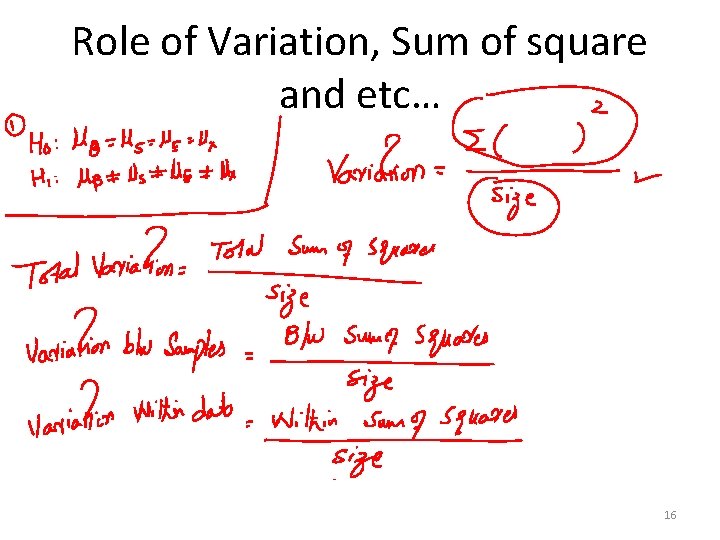 Role of Variation, Sum of square
and etc…
①
H₀: μ_B = μ_S = μ_E = μ_x
H₁: μ_B ≠ μ_S ≠ μ_E ≠ μ_x
Variation = Σ( )²
size
?
Total Variation = Total Sum of Squares
size
?
Variation b/w Samples = B/w Sum of Squares
size
?
Variation Within data = Within Sum of Squares
size
?
16